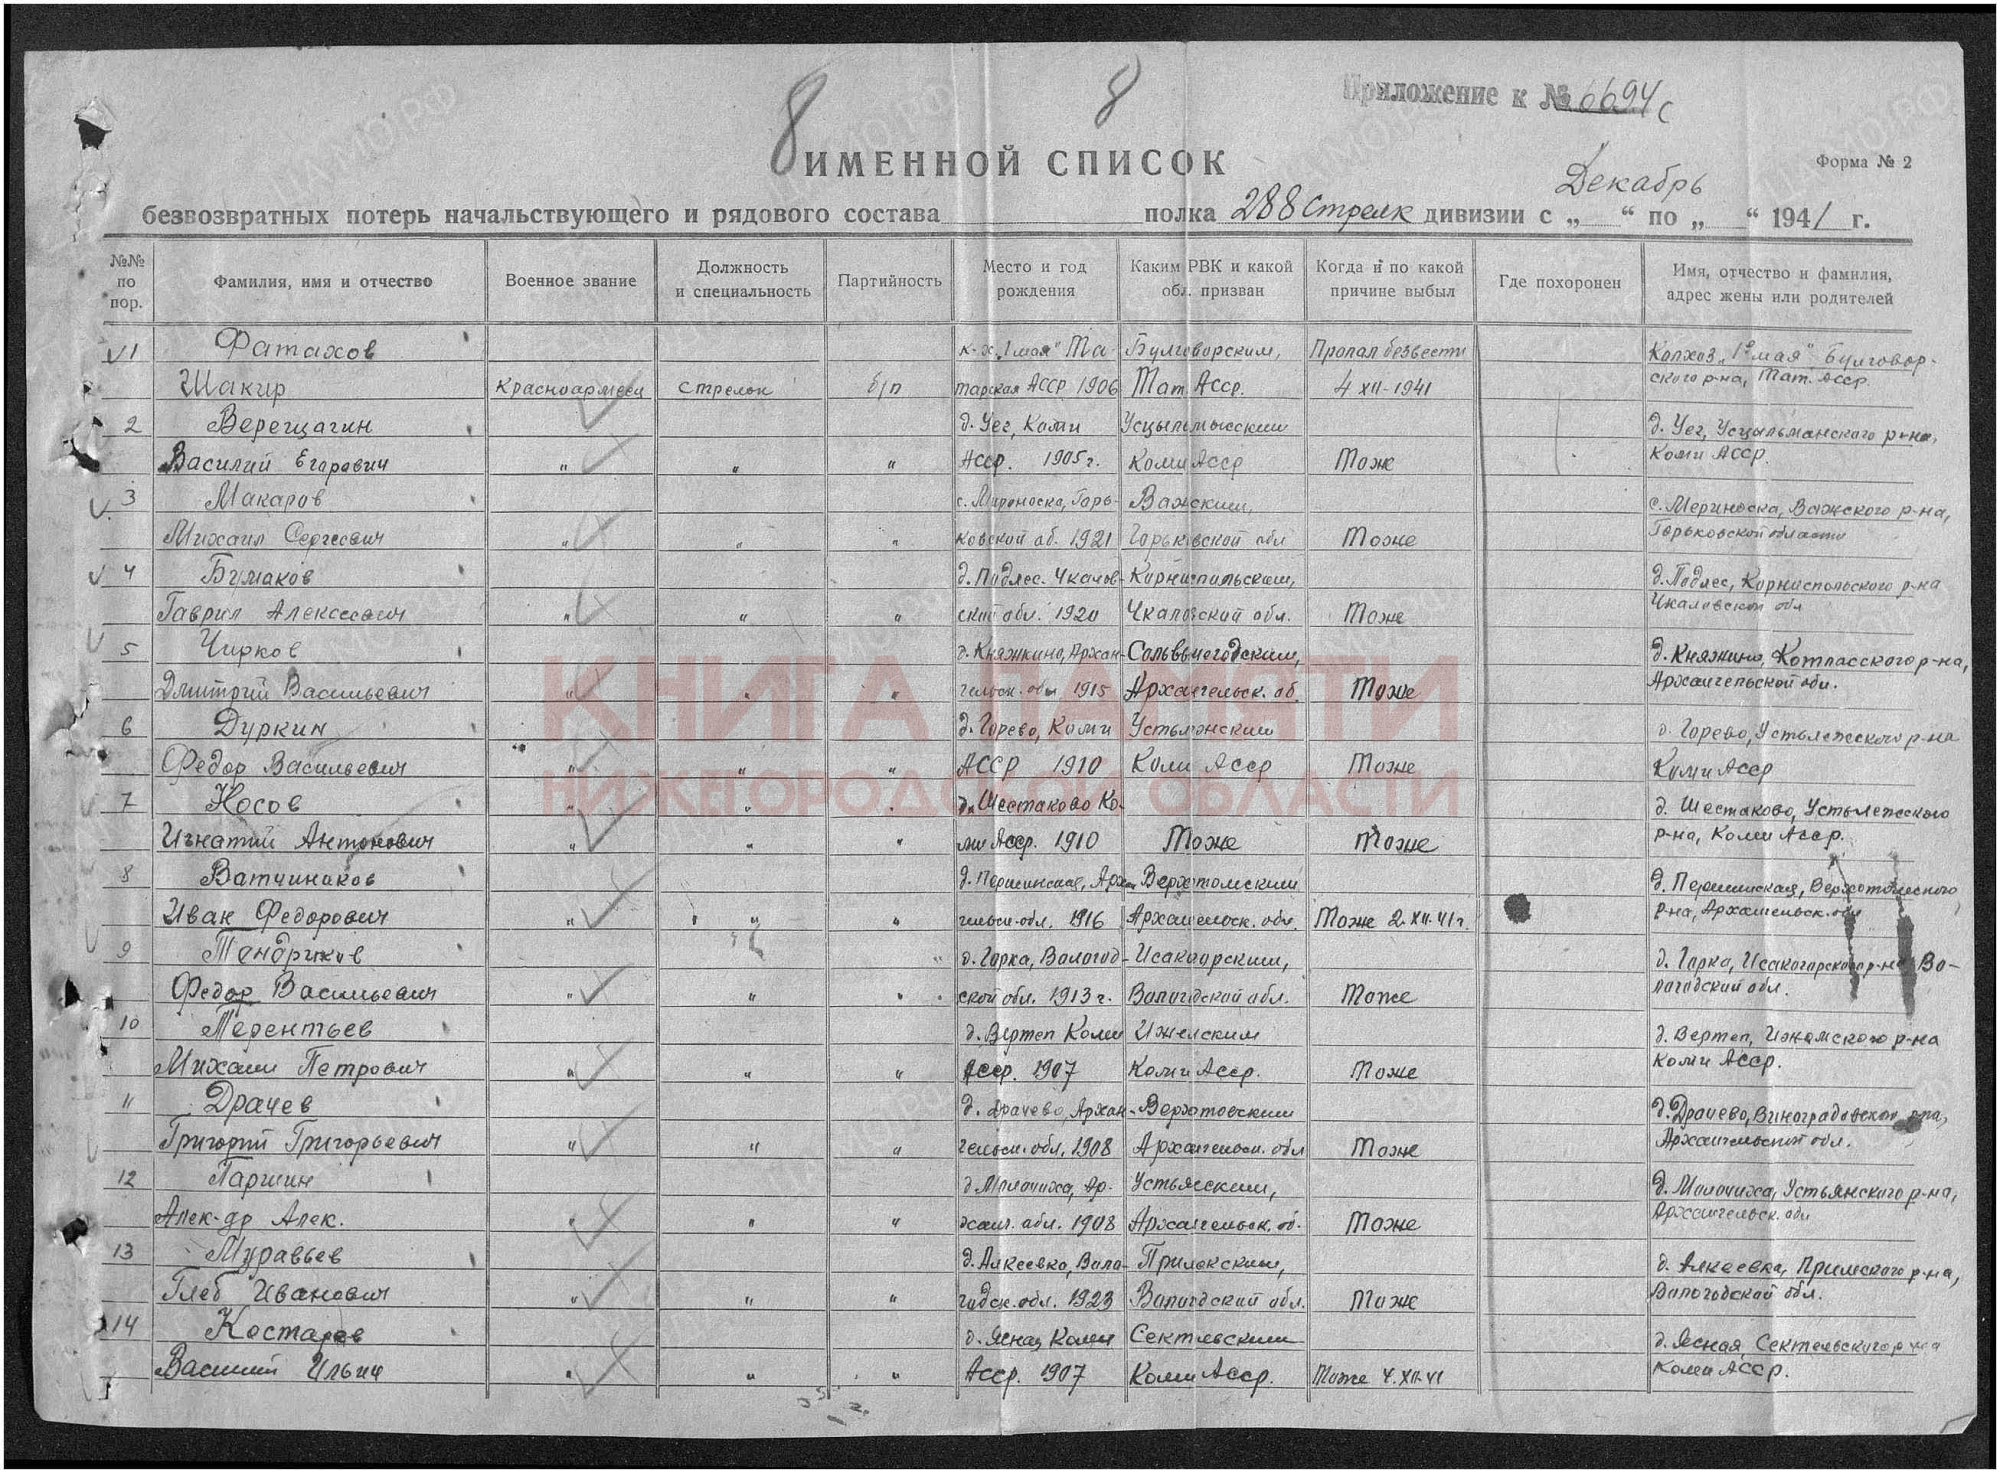 8 8 Приложение к № 6694с
ИМЕННОЙ СПИСОК Форма № 2
Декабрь
безвозвратных потерь начальствующего и рядового состава полка 288 Стрелк дивизии с „ “ по „ “ 1941 г.
№№ по пор. Фамилия, имя и отчество Военное звание Должность и специальность Партийность Место и год рождения Каким РВК и какой обл. призван Когда и по какой причине выбыл Где похоронен Имя, отчество и фамилия, адрес жены или родителей
1 Фатахов к-х „1 мая" Та- Булговорским, Пропал безвести Колхоз „1е мая" Булговор-
Шакир Красноармеец стрелок б/п тарская АССР 1906 Тат. Асср. 4 XII-1941 ского р-на, Тат. Асср.
2 Верещагин д. Уег, Коми Усцыльмысским д. Уег, Усцыльманского р-на,
Василий Егарович " " " Асср. 1905 г. Коми Асср Тож Коми Асср.
3 Макаров с. Горь- Важским, с. Важского р-на,
Михаил Сергеевич " " " ковской об. 1921 Горьковской обл Тоже Горьковской области
4 Бумаков д. Подлес. Чкалов- д. Подлес, р-на
Гаврил Алексеевич " " " ской обл. 1920 Чкаловской обл. Тоже Чкаловской обл
5 Чирков д. Княжкино, Архан- Сольвычегодским, д. Княжино, Котласского р-на,
Дмитрий Васильевич " " " гельск. обл 1915 Архангельск. об. Тоже Архангельской обл.
6 Дуркин д. Горево, Коми д. Горево, р-на
Федор Васильевич " " " АССР 1910 Коми Асср Тоже Коми Асср
7 Носов " " д. Шестаково Ко- д. Шестаково,
Игнатий Антонович " " " ми Асср. 1910 Тоже Тоже р-на, Коми Асср.
8 Ватчиников д. Архан Верхтомским д.
Иван Федорович " " " гельск. обл. 1916 Архангельск. обл. Тоже 2.XII.41 г. р-на, Архангельск. обл
9 Тендряков д. Горка, Вологод- Исакогорским, д. Горка, Исакогорского р-на Во-
Федор Васильевич " " " ской обл. 1913 г. Вологодской обл. Тоже логодский обл.
10 Терентьев д. Вертеп Коми Ижемским д. Вертеп, Ижемского р-на
Михаил Петрович " " " Асср. 1907 Коми Асср. Тоже Коми Асср.
11 Драчев д. Драчево, Архан- д. Драчево, Виноградовского р-на,
Григорий Григорьевич " " " гельск. обл. 1908 Архангельск. обл Тоже Архангельской обл.
12 Паршин д. Молочиха, Ар- Устьянским, д. Молочиха, Устьянского р-на,
Алек-др Алек. " " " ханг. обл. 1908 Архангельск. об. Тоже Архангельск. обл
13 Муравьев д. Алксевка, Воло- д. Алкеевка, р-на,
Глеб Иванович " " " годск. обл. 1923 Вологодской обл. Тоже Вологодской обл.
14 Костарев д. Ясная Коми д. Ясная,
Василий Ильич " " " Асср. 1907 Коми Асср. Тоже 4.XII.41 Коми Асср.
КНИГА ПАМЯТИ
НИЖЕГОРОДСКОЙ ОБЛАСТИ